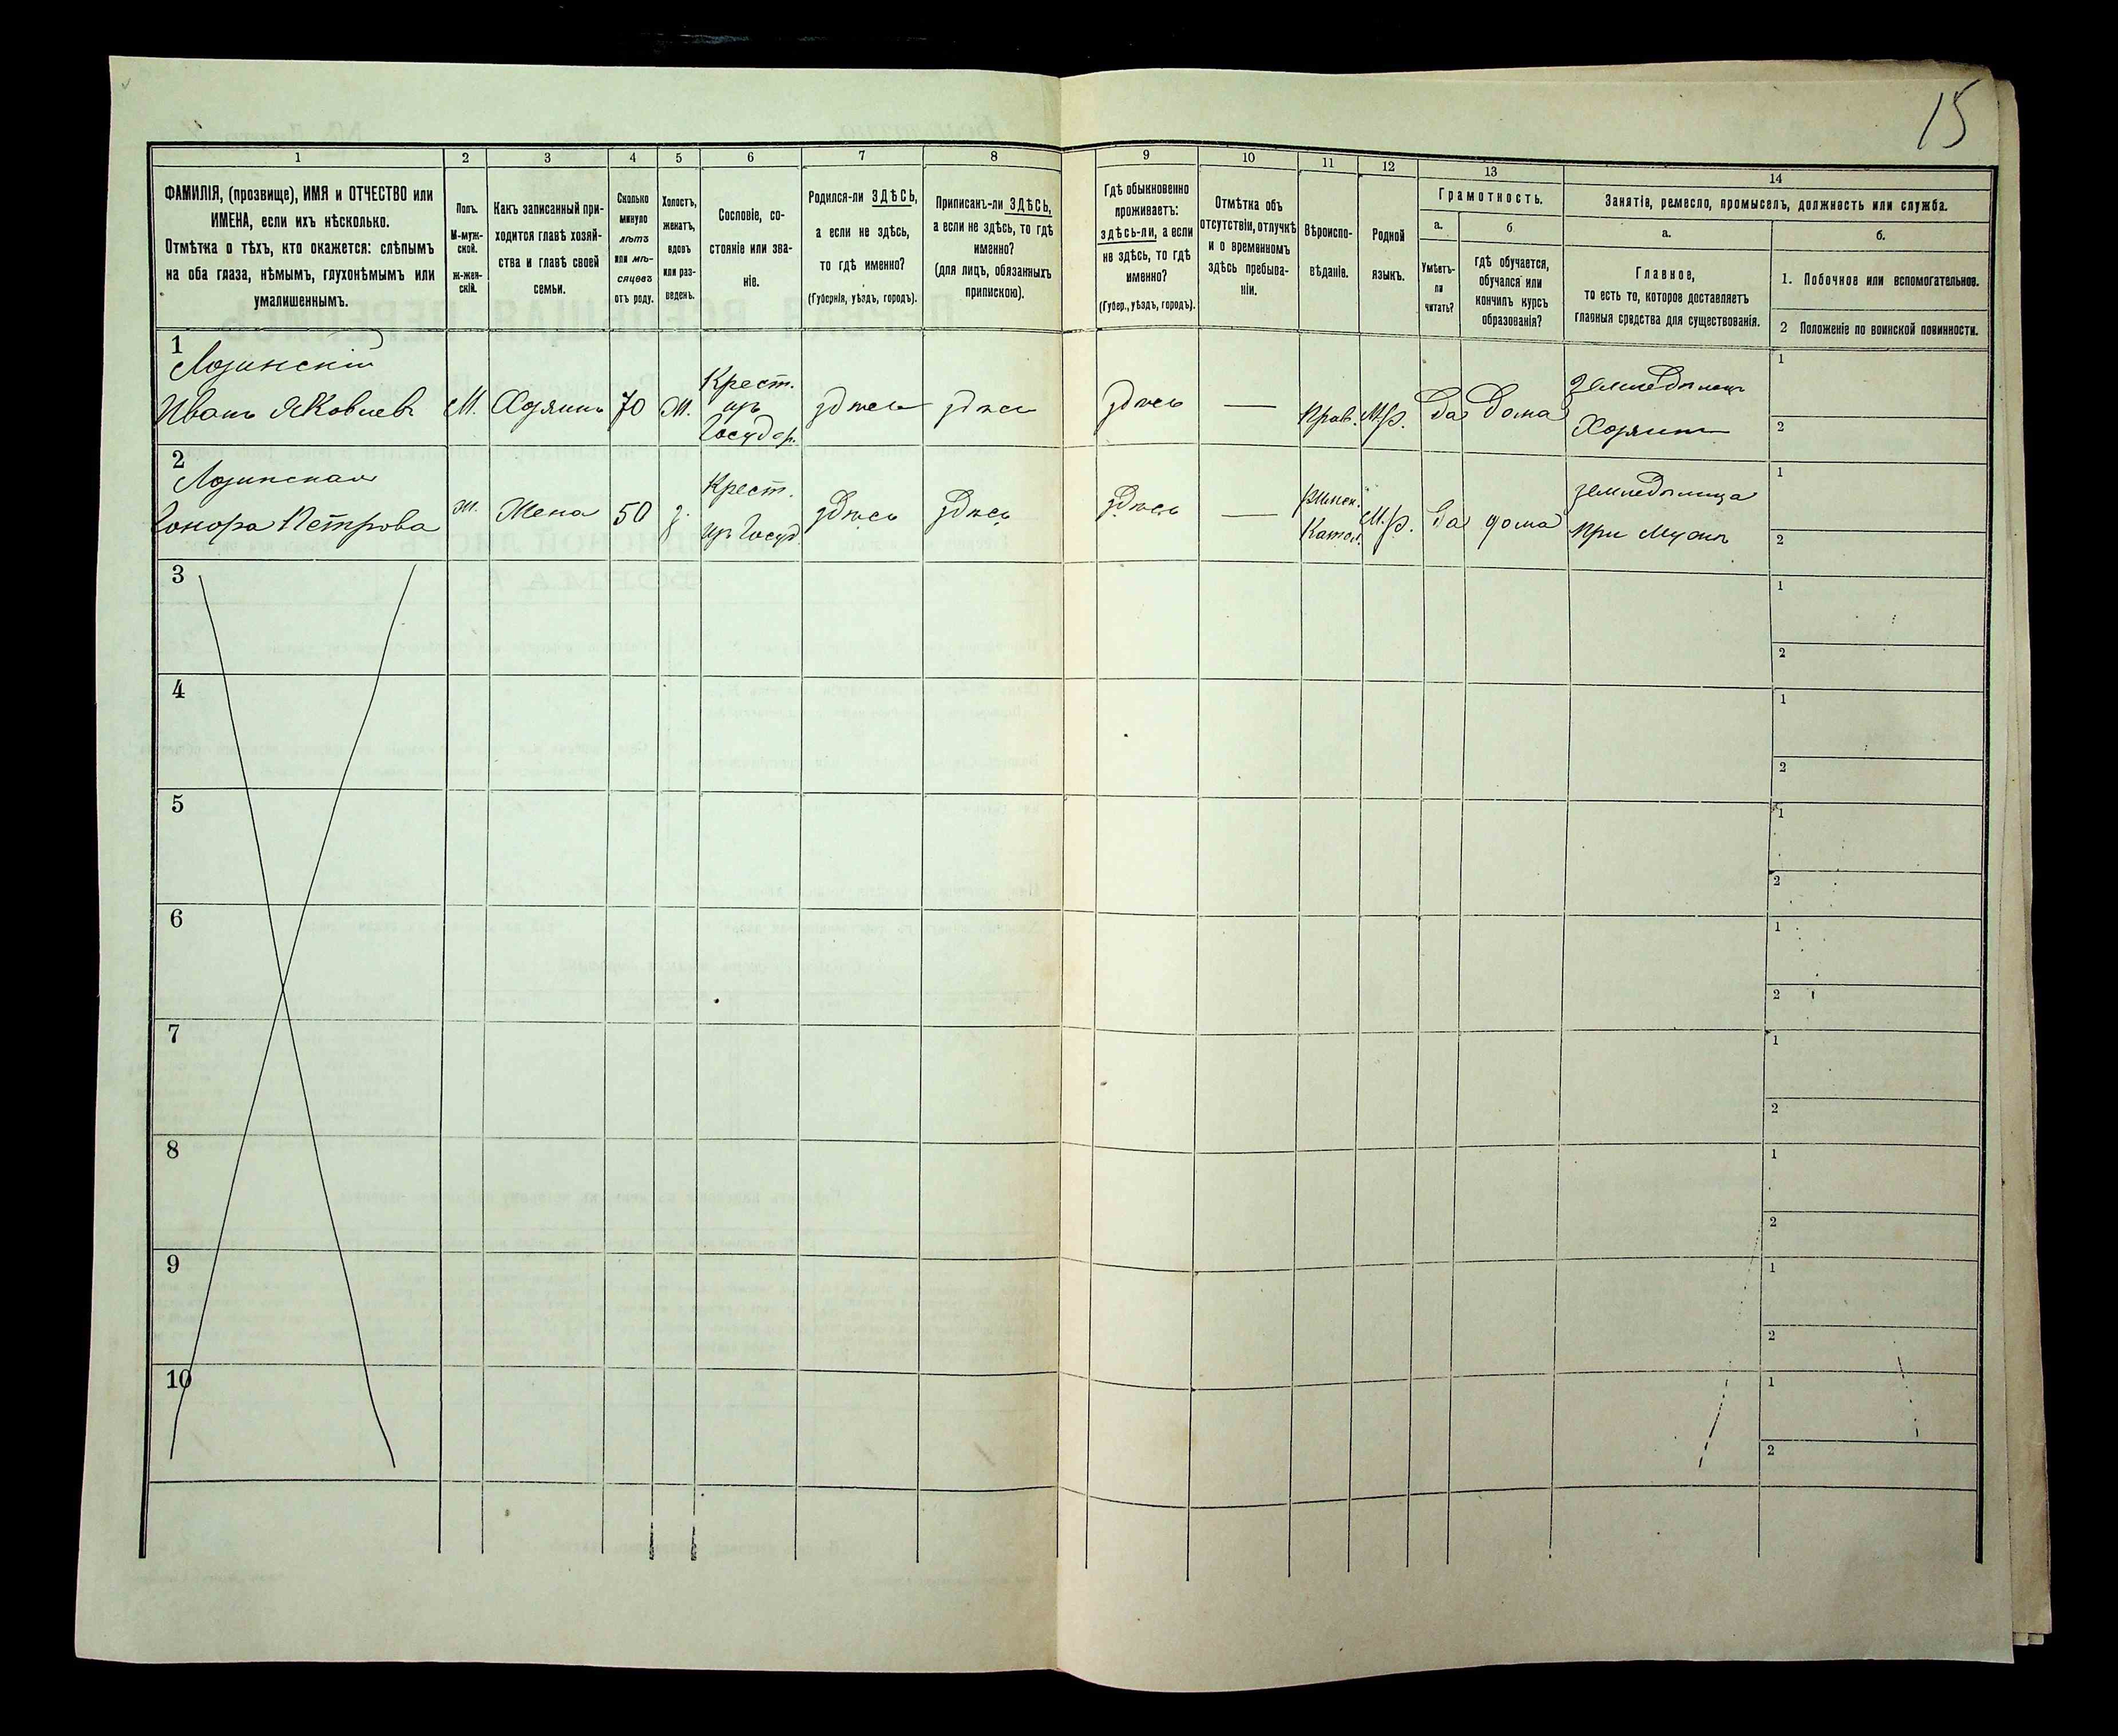 15
1
2
3
4
5
6
7
8
9
10
11
12
13
14
ФАМИЛІЯ, (прозвище), ИМЯ и ОТЧЕСТВО или
ИМЕНА, если ихъ нѣсколько.
Отмѣтка о тѣхъ, кто окажется: слѣпымъ
на оба глаза, нѣмымъ, глухонѣмымъ или
умалишеннымъ.
Полъ.
М-муж-
ской.
ж-жен-
скій.
Какъ записанный при-
ходится главѣ хозяй-
ства и главѣ своей
семьи.
Сколько
минуло
лѣтъ
или мѣ-
сяцевъ
отъ роду.
Холостъ,
женатъ,
вдовъ
или раз-
веденъ.
Сословіе, со-
стояніе или зва-
ніе.
Родился-ли ЗДѢСЬ,
а если не здѣсь,
то гдѣ именно?
(Губернія, уѣздъ, городъ).
Приписанъ-ли ЗДѢСЬ,
а если не здѣсь, то гдѣ
именно?
(для лицъ, обязанныхъ
припискою).
Гдѣ обыкновенно
проживаетъ:
здѣсь-ли, а если
не здѣсь, то гдѣ
именно?
(Губер., уѣздъ, городъ).
Отмѣтка объ
отсутствіи, отлучкѣ
и о временномъ
здѣсь пребыва-
ніи.
Вѣроиспо-
вѣданіе.
Родной
языкъ.
Грамотность.
а.
Умѣетъ-
ли
читать?
б
гдѣ обучается,
обучался или
кончилъ курсъ
образованія?
Занятіе, ремесло, промыселъ, должность или служба.
а.
Главное,
то есть то, которое доставляетъ
главныя средства для существованія.
б.
1. Побочное или вспомогательное.
2 Положеніе по воинской повинности.
1
Лозинскій
Иванъ Яковлевъ
М.
Хозяинъ
70
ж.
Крест.
изъ
Государ.
здѣсь
здѣсь
здѣсь
—
Прав.
М.р.
Да
Дома
Земледѣлецъ
Хозяинъ
1
2
2
Лозинская
Гонора Петрова
ж.
Жена
50
з.
Крест.
изъ Госуд.
здѣсь
здѣсь
здѣсь
—
Римск.
Катол.
М.р.
Да
дома
земледѣлица
при мужѣ
1
2
3
1
2
4
1
2
5
1
2
6
1
2
7
1
2
8
1
2
9
1
2
10
1
2